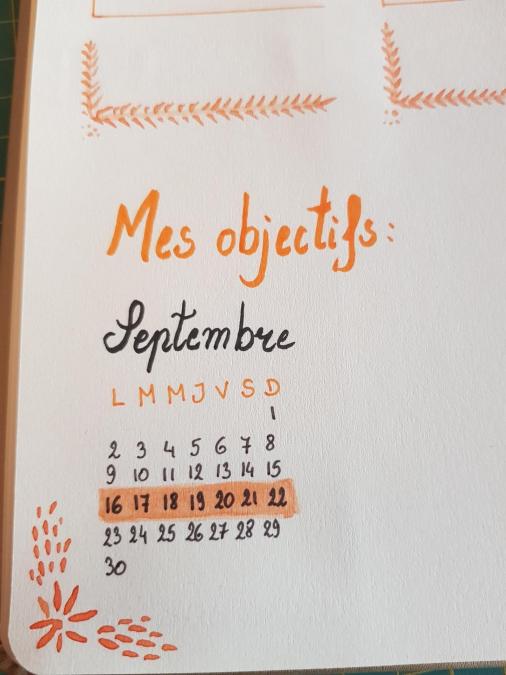 Mes objectifs:
Septembre
L M M J V S D
1
2 3 4 5 6 7 8
9 10 11 12 13 14 15
16 17 18 19 20 21 22
23 24 25 26 27 28 29
30